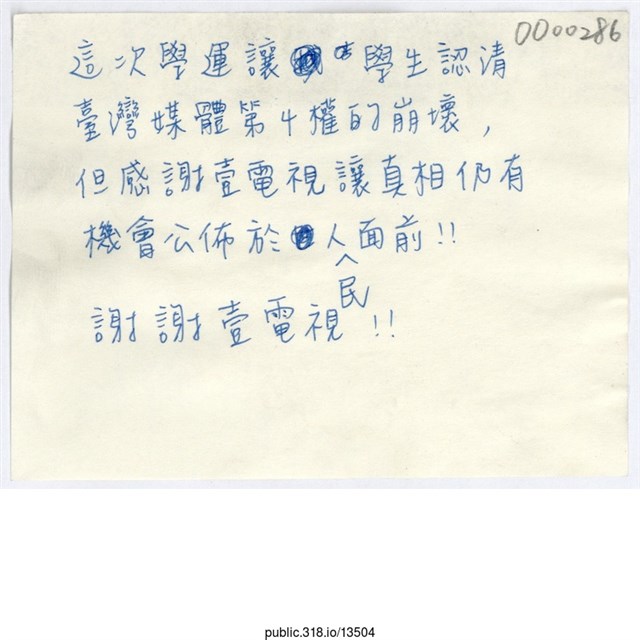 0000286
這次學運讓學生認清
臺灣媒體第4權的崩壞,
但感謝壹電視讓真相仍有
機會公佈於人民面前!!
謝謝壹電視!!
public.318.io/13504